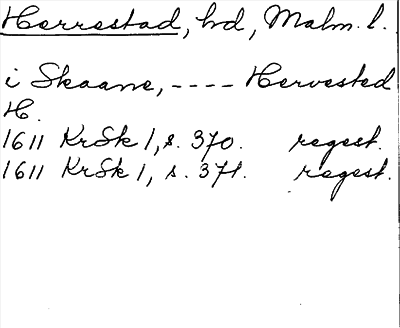 Herrestad, hd, Malm. l.
i Skaane, ---- Herrested
H.
1611 KrSk 1, s. 370. regest.
1611 KrSk 1, s. 371. regest.